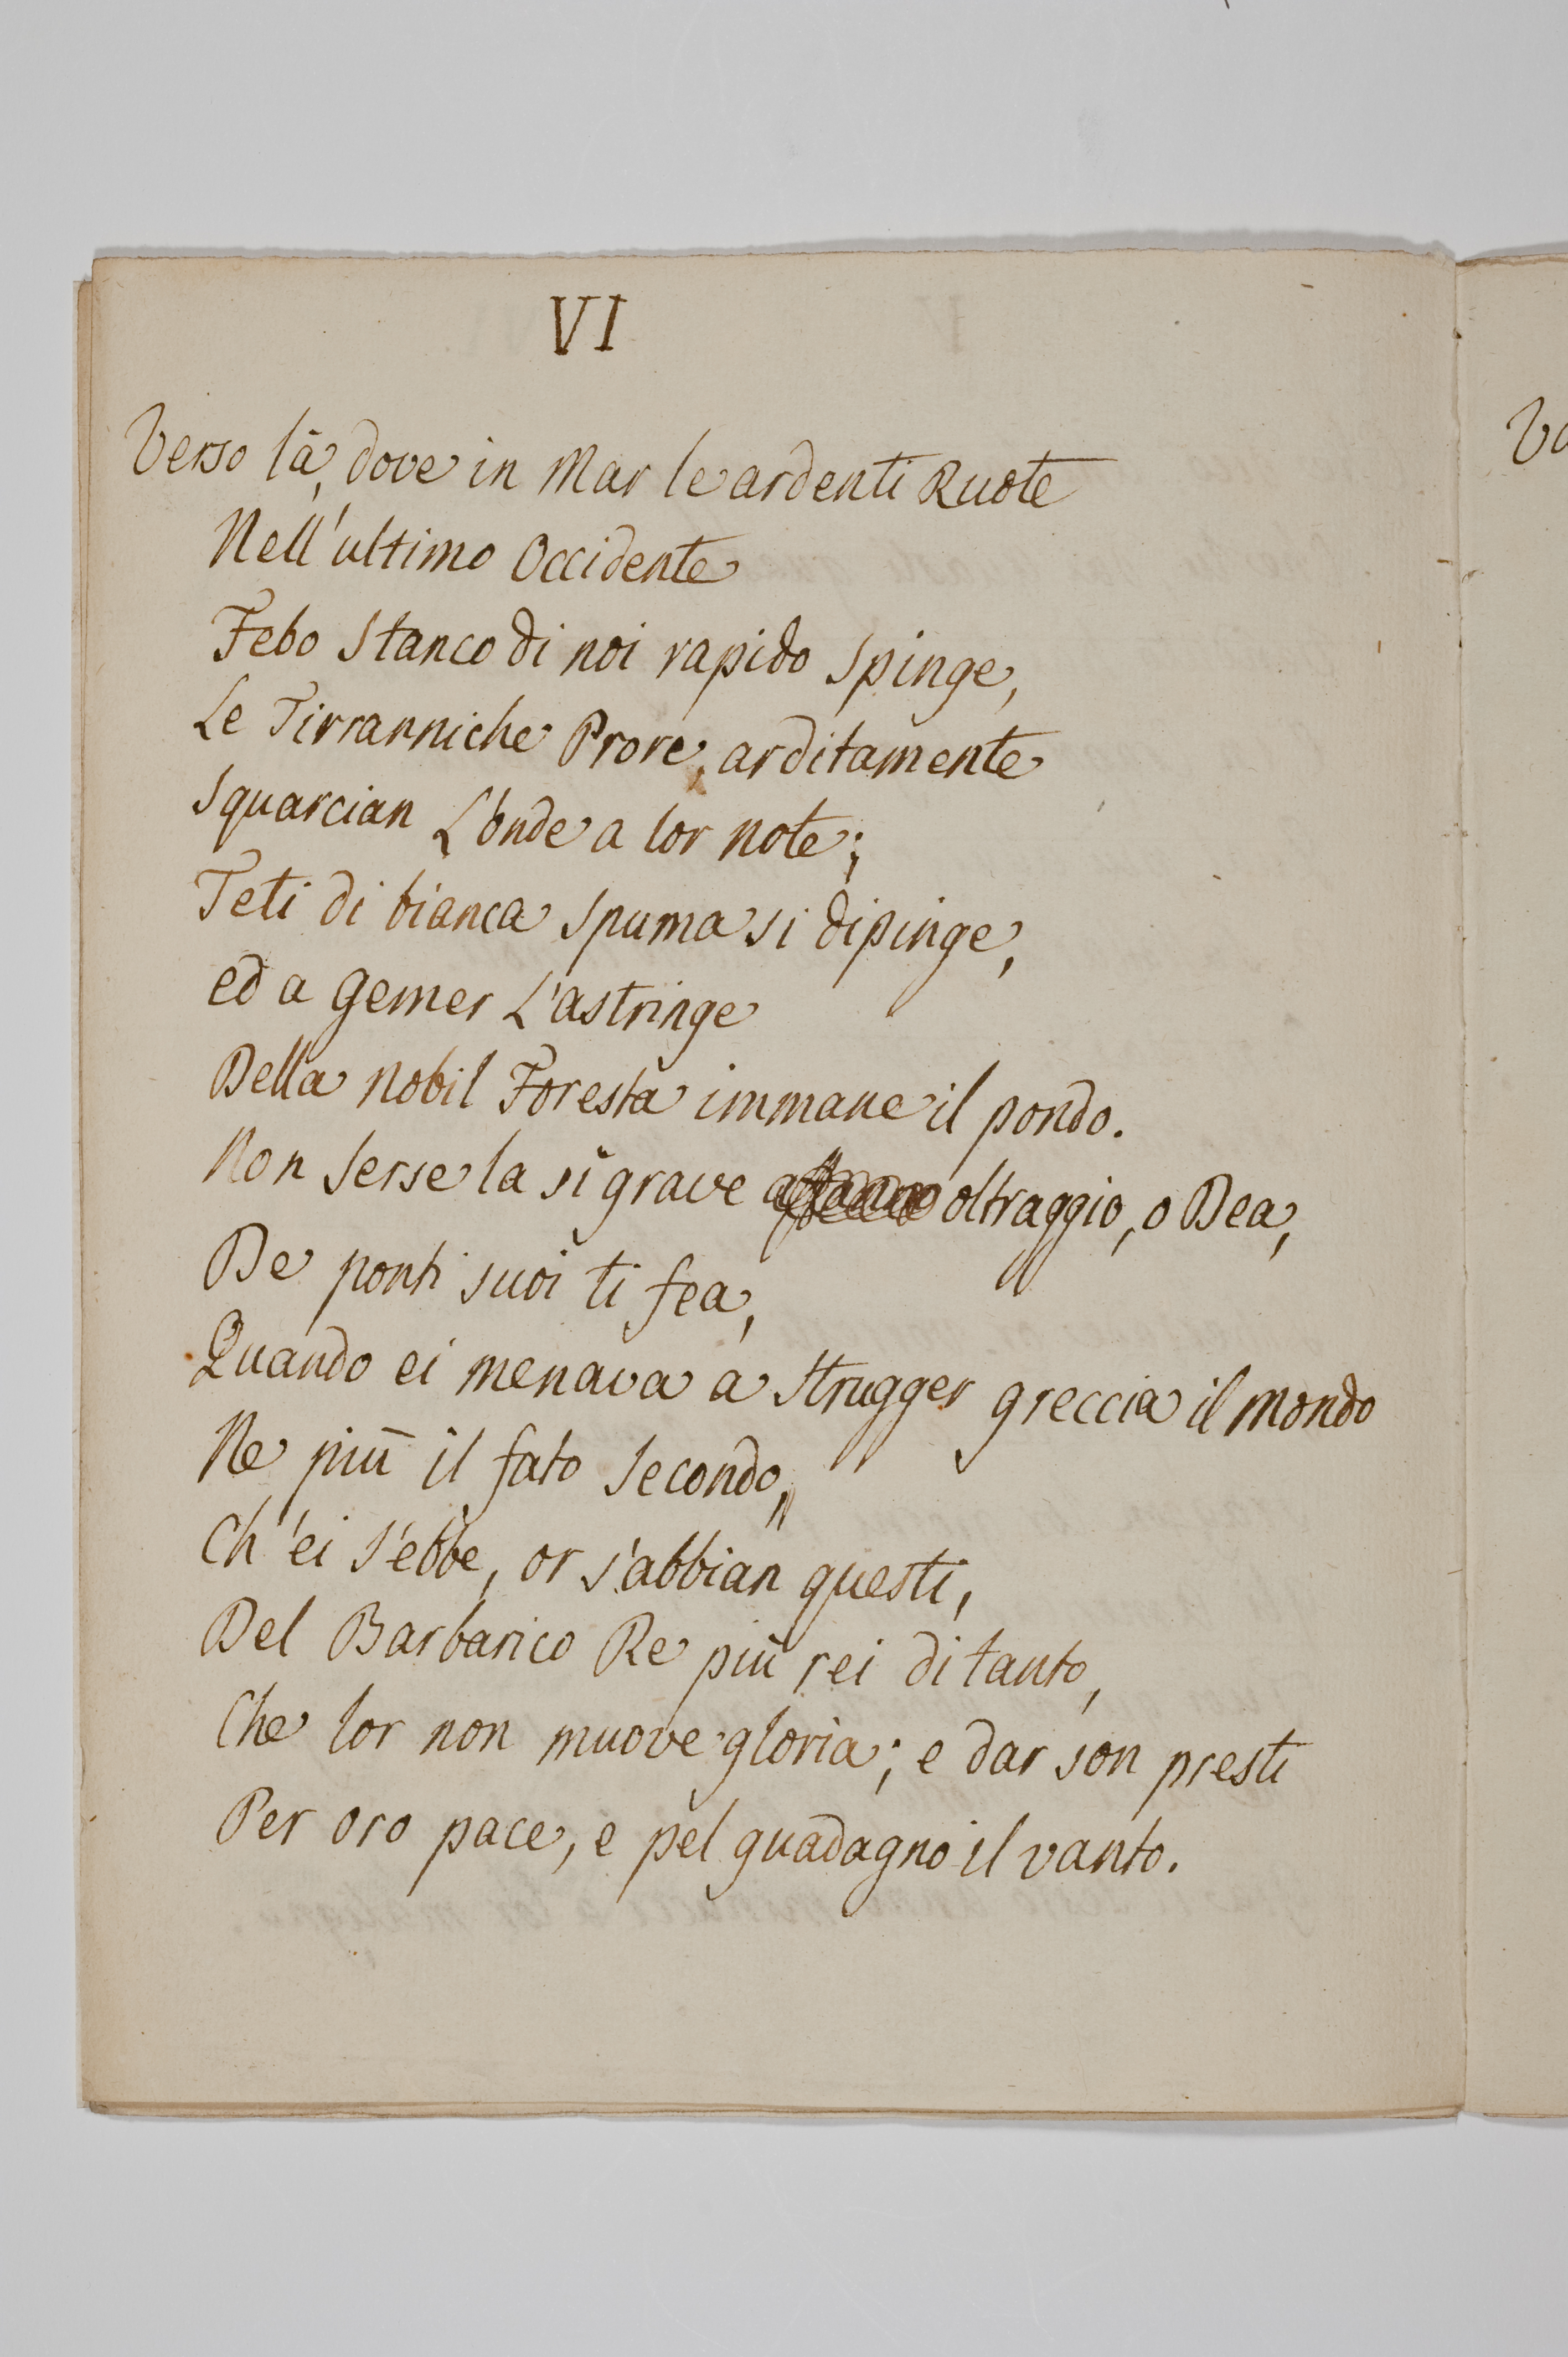 VI
Verso là, dove in Mar le ardenti Ruote
Nell'ultimo Occidente
Febo stanco di noi rapido spinge,
Le Tirranniche Prore, arditamente
Squarcian L'onde a lor note;
Teti di bianca spuma si dipinge,
ed a gemer L'astringe
Della nobil Foresta immane il pondo.
Non Serse la sì grave oltraggio, o Dea,
De ponti suoi ti fea,
Quando ei menava a strugger greccia il mondo
Ne più il fato secondo,
Ch'ei s'ebbe, or s'abbian questi,
Del Barbarico Re più rei di tanto,
Che lor non muove gloria; e dar son presti
Per oro pace, e pel guadagno il vanto.